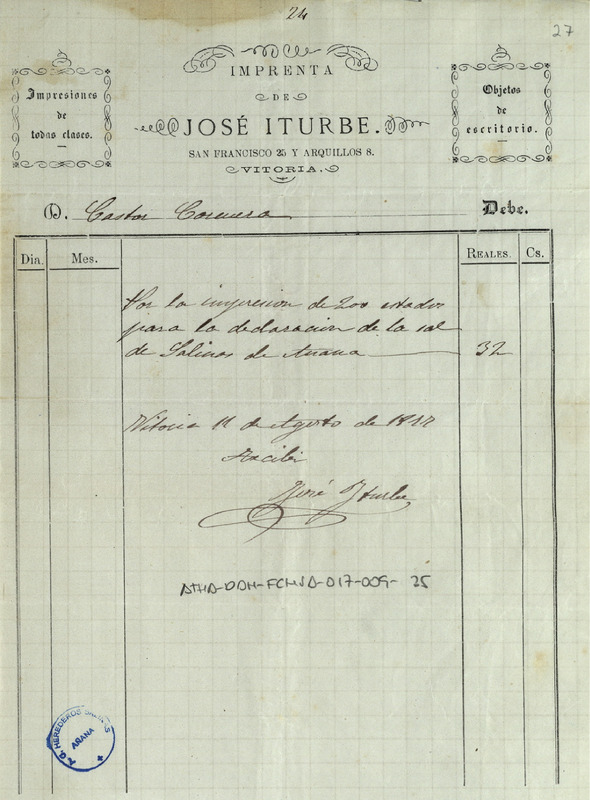 24
27
Impresiones
de
todas clases.
IMPRENTA
DE
JOSÉ ITURBE.
SAN FRANCISCO 25 Y ARQUILLOS 8.
VITORIA.
Objetos
de
escritorio.
D. Castor Debe.
Dia. Mes. REALES. Cs.
Por la impresion de 200 estados
para la declaracion de la sal
de Salinas de Añana 32
Vitoria 11 de Agosto de
Recibi
José Yturbe
ATHA-DDH-FCHSA-017-009-25
HEREDEROS SALINAS
AÑANA